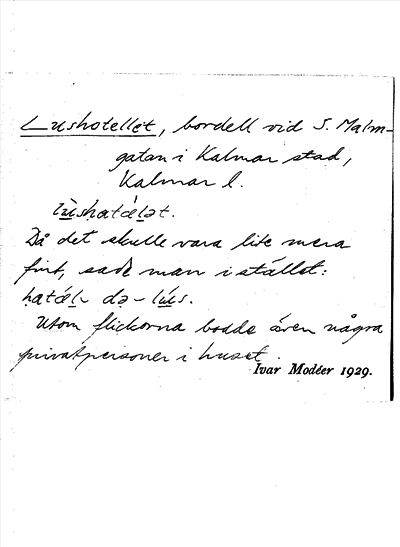 Lushotellet, bordell vid S. Malm-
gatan i Kalmar stad,
Kalmar l.
lùsḥatǽlət.
Då det skulle vara lite mera
fint, sade man i stället:
ḥatǽl- də - lús.
Utom flickorna bodde även några
privatpersoner i huset.
Ivar Modéer 1929.